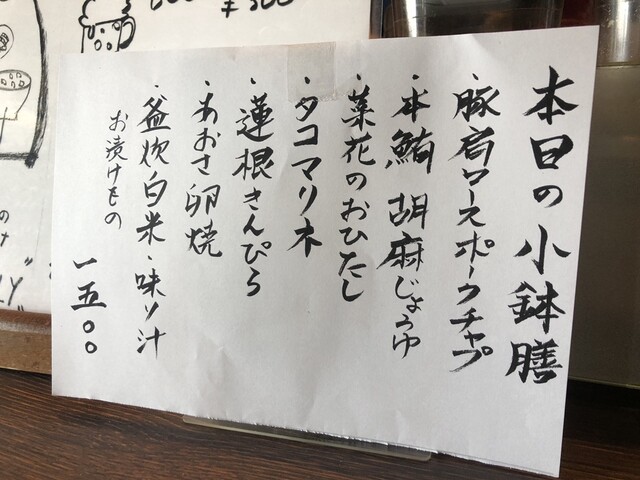 本日の小鉢膳
・豚肩ロースポークチャプ
・本鮪胡麻じょうゆ
・菜花のおひたし
・タコマリネ
・蓮根きんぴら
・あおさ卵焼
・釜炊白米・味ソ汁
お漬けもの
一五〇〇